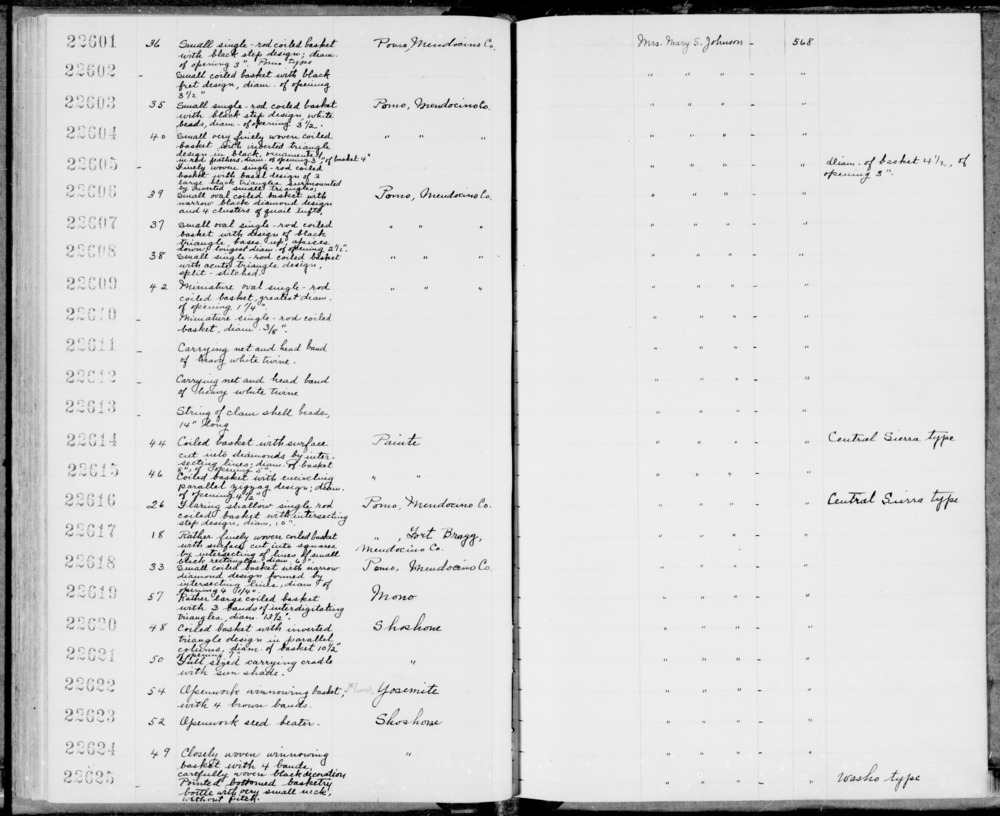 22601 36 Small single-rod coiled basket Pomo, Mendocino Co. Mrs. Mary S. Johnson - 568
with black step design; diam.
of opening 3". Pomo type
22602 - Small coiled basket with black " " " - "
fret design, diam. of opening
3 1/2"
22603 35 Small single-rod coiled basket Pomo, Mendocino Co. " " " - "
with black step design, white
beads, diam. of opening 3 1/2.
22604 40 Small very finely woven coiled " " " " " " - "
basket with inverted triangle
design in black, ornamented
in red feathers, diam. of opening 3", of basket 4"
22605 - Finely woven single-rod coiled " " " - " Diam. of basket 4 1/2, of
basket with basal design of 2 opening 3".
large black triangles surmounted
by inverted small triangles,
22606 39 Small oval coiled basket with Pomo, Mendocino Co. " " " - "
narrow black diamond design
and 4 clusters of quail tufts,
22607 37 Small oval single-rod coiled " " " " " " - "
basket with design of black
triangle, bases up, apices
down; longest diam. of opening 2 1/2".
22608 38 Small single-rod coiled basket " " " " " " - "
with acute triangle design,
split-stitched.
22609 42 Miniature oval single-rod " " " " " " - "
coiled basket, greatest diam.
of opening 1 1/4".
22610 - Miniature single-rod coiled " " " - "
basket, diam. 3/8".
22611 - Carrying net and head band " " " - "
of heavy white twine.
22612 - Carrying net and head band " " " - "
of heavy white twine
22613 - String of clam shell beads, " " " - "
14" long
22614 44 Coiled basket with surface Paiute " " " - " Central Sierra type
cut into diamonds by inter-
secting lines; diam. of basket
8", of opening 5".
22615 46 Coiled basket with encircling " " " " " - "
parallel zigzag design; diam.
of opening 4 1/2"
22616 26 Flaring shallow single rod Pomo, Mendocino Co. " " " - " Central Sierra type
coiled basket with intersecting
step design, diam. 10".
22617 18 Rather finely woven coiled basket " , Fort Bragg, " " " - "
with surface cut into squares Mendocino Co.
by intersecting of lines of small
black rectangles, diam. 6".
22618 33 Small coiled basket with narrow Pomo, Mendocino Co. " " " - "
diamond design formed by
intersecting lines, diam. of
opening 4 1/4".
22619 57 Rather large coiled basket Mono " " " - "
with 3 bands of interdigitating
triangles, diam. 13 1/2".
22620 48 Coiled basket with inverted Shoshone " " " - "
triangle design in parallel
columns, diam. of basket 10 1/2"
of opening
22621 50 Full sized carrying cradle " " " " - "
with sun shade.
22622 54 Openwork winnowing basket, Yosemite " " " - "
with 4 brown bands.
22623 52 Openwork seed beater. Shoshone " " " - "
22624 49 Closely woven winnowing " " " " - "
basket with 4 bands,
carefully woven black decoration
22625 Pointed bottomed basketry " " " - " Washo type
bottle with very small neck,
without pitch.